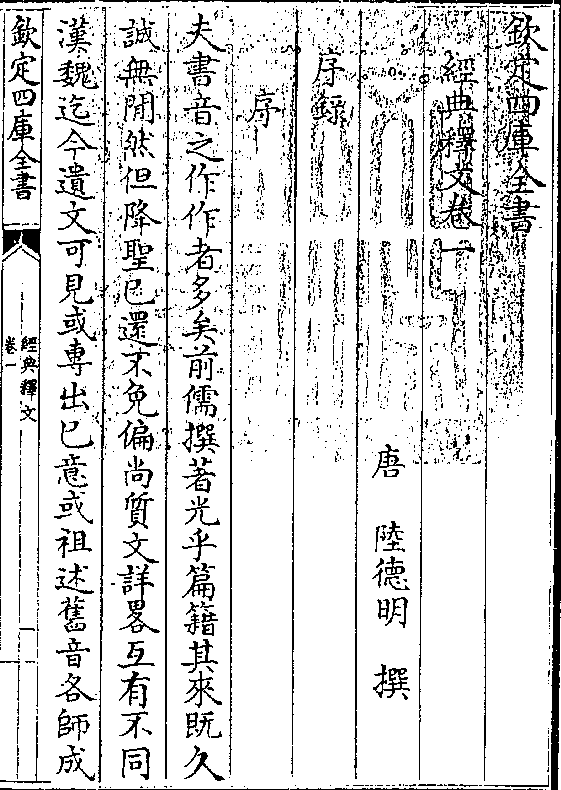 欽定四庫全書
經典釋文卷一
唐 陸德明 撰
序録
序
夫書音之作作者多矣前儒撰著光乎篇籍其來旣久
誠無閒然但降聖已還不免偏尚質文詳畧互有不同
漢魏迄今遺文可見或專出已意或祖述舊音各師成
欽定四庫全書
經典釋文
卷一
一